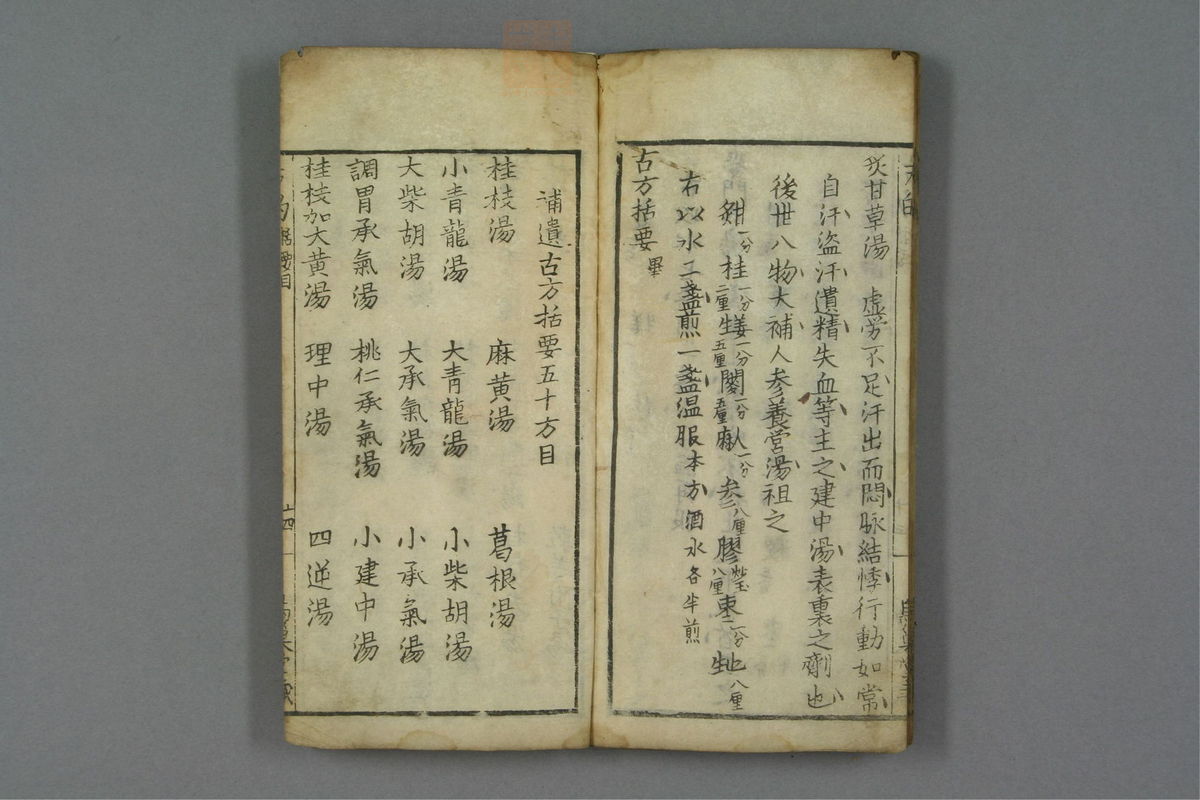 炙甘草湯　虚労不足汗出而悶脉結悸行動如常
自汗盗汗遺精失血等主之建中湯表裏之劑也
後世八物大補人参養営湯祖之
甘一分 桂一分二厘 生姜一分五厘 一分 麻人一分 参八厘 膠八厘 二分 生地八厘
右以水二盞煎一盞温服本方酒水各半煎
古方括要畢
補遺古方括要五十方目
桂枝湯　麻黄湯　葛根湯
小青龍湯　大青龍湯　小柴胡湯
大柴胡湯　大承氣湯　小承氣湯
調胃承氣湯　桃仁承氣湯　小建中湯
桂枝加大黄湯　理中湯　四逆湯